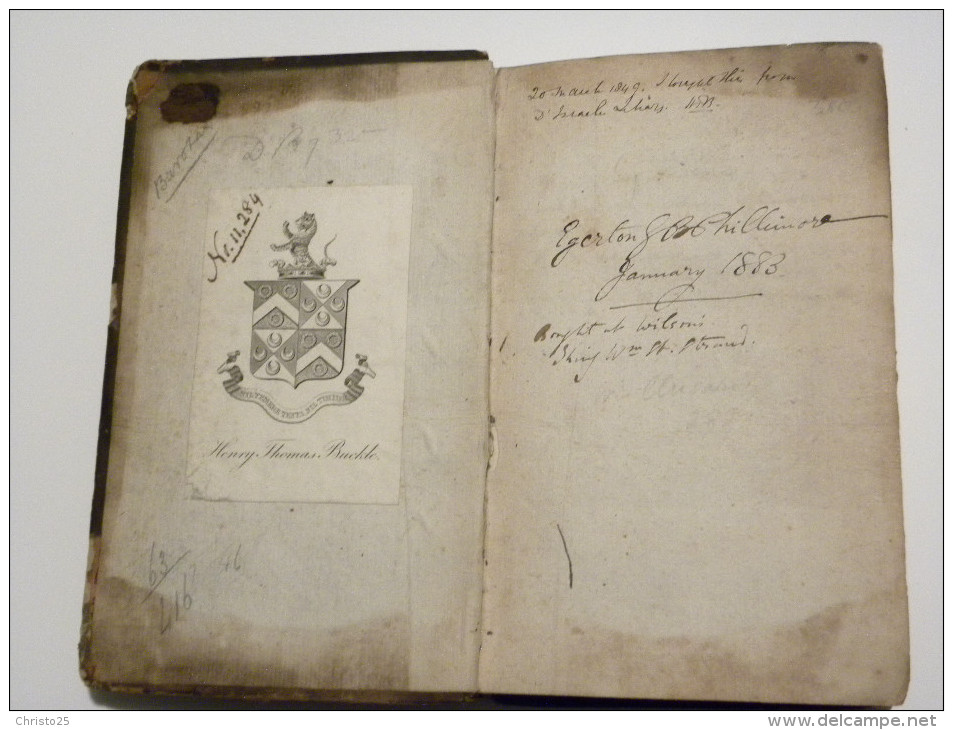 Nr. 11. 284
NIL TEMERE TENTA NIL TIMIDE
Henry Thomas Buckle.
63
46
116
20 March 1849. I bought this from
D'Israeli Library. HTB.
Egerton G B Phillimore
January 1883.
Bought at Wilson's
King Wm St. Strand.
Christo25
www.delcampe.net